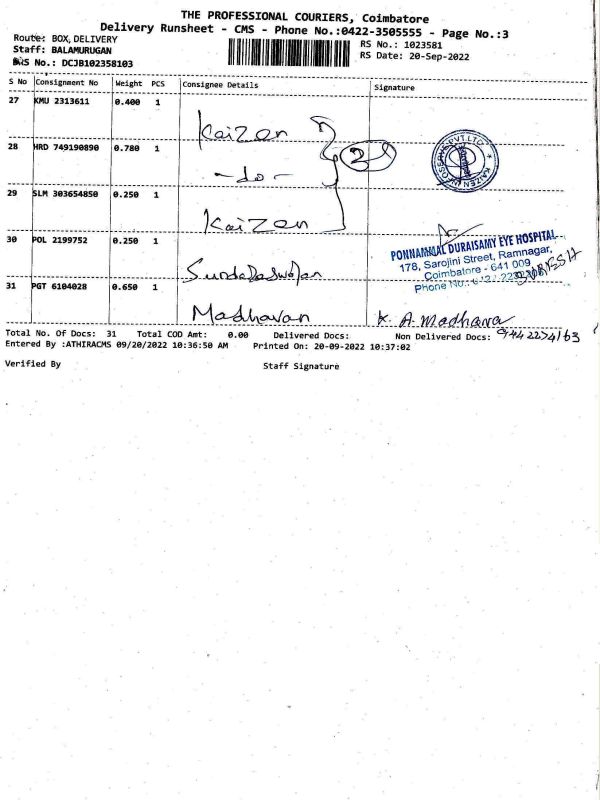 THE PROFESSIONAL COURIERS, Coimbatore
Delivery Runsheet - CMS - Phone No.:0422-3505555 - Page No.:3
Route: BOX, DELIVERY
Staff: BALAMURUGAN
No.: DCJB102358103
RS No.: 1023581
RS Date: 20-Sep-2022
S No Consignment No Weight PCS Consignee Details Signature
27 KMU 2313611 0.400 1 Kaizen
28 HRD 749190890 0.780 1 -do-
29 SLM 303654850 0.250 1 Kaizen
KAIZEN PVT.LTD
30 POL 2199752 0.250 1
PONNAMMAL DURAISAMY EYE HOSPITAL
178, Sarojini Street, Ramnagar,
Coimbatore - 641 009
Phone No.:
SURESH
31 PGT 6104028 0.650 1 Madhavan K. A. Madhava
9442274163
Total No. Of Docs: 31 Total COD Amt: 0.00 Delivered Docs: Non Delivered Docs:
Entered By :ATHIRACMS 09/20/2022 10:36:50 AM Printed On: 20-09-2022 10:37:02
Verified By Staff Signature